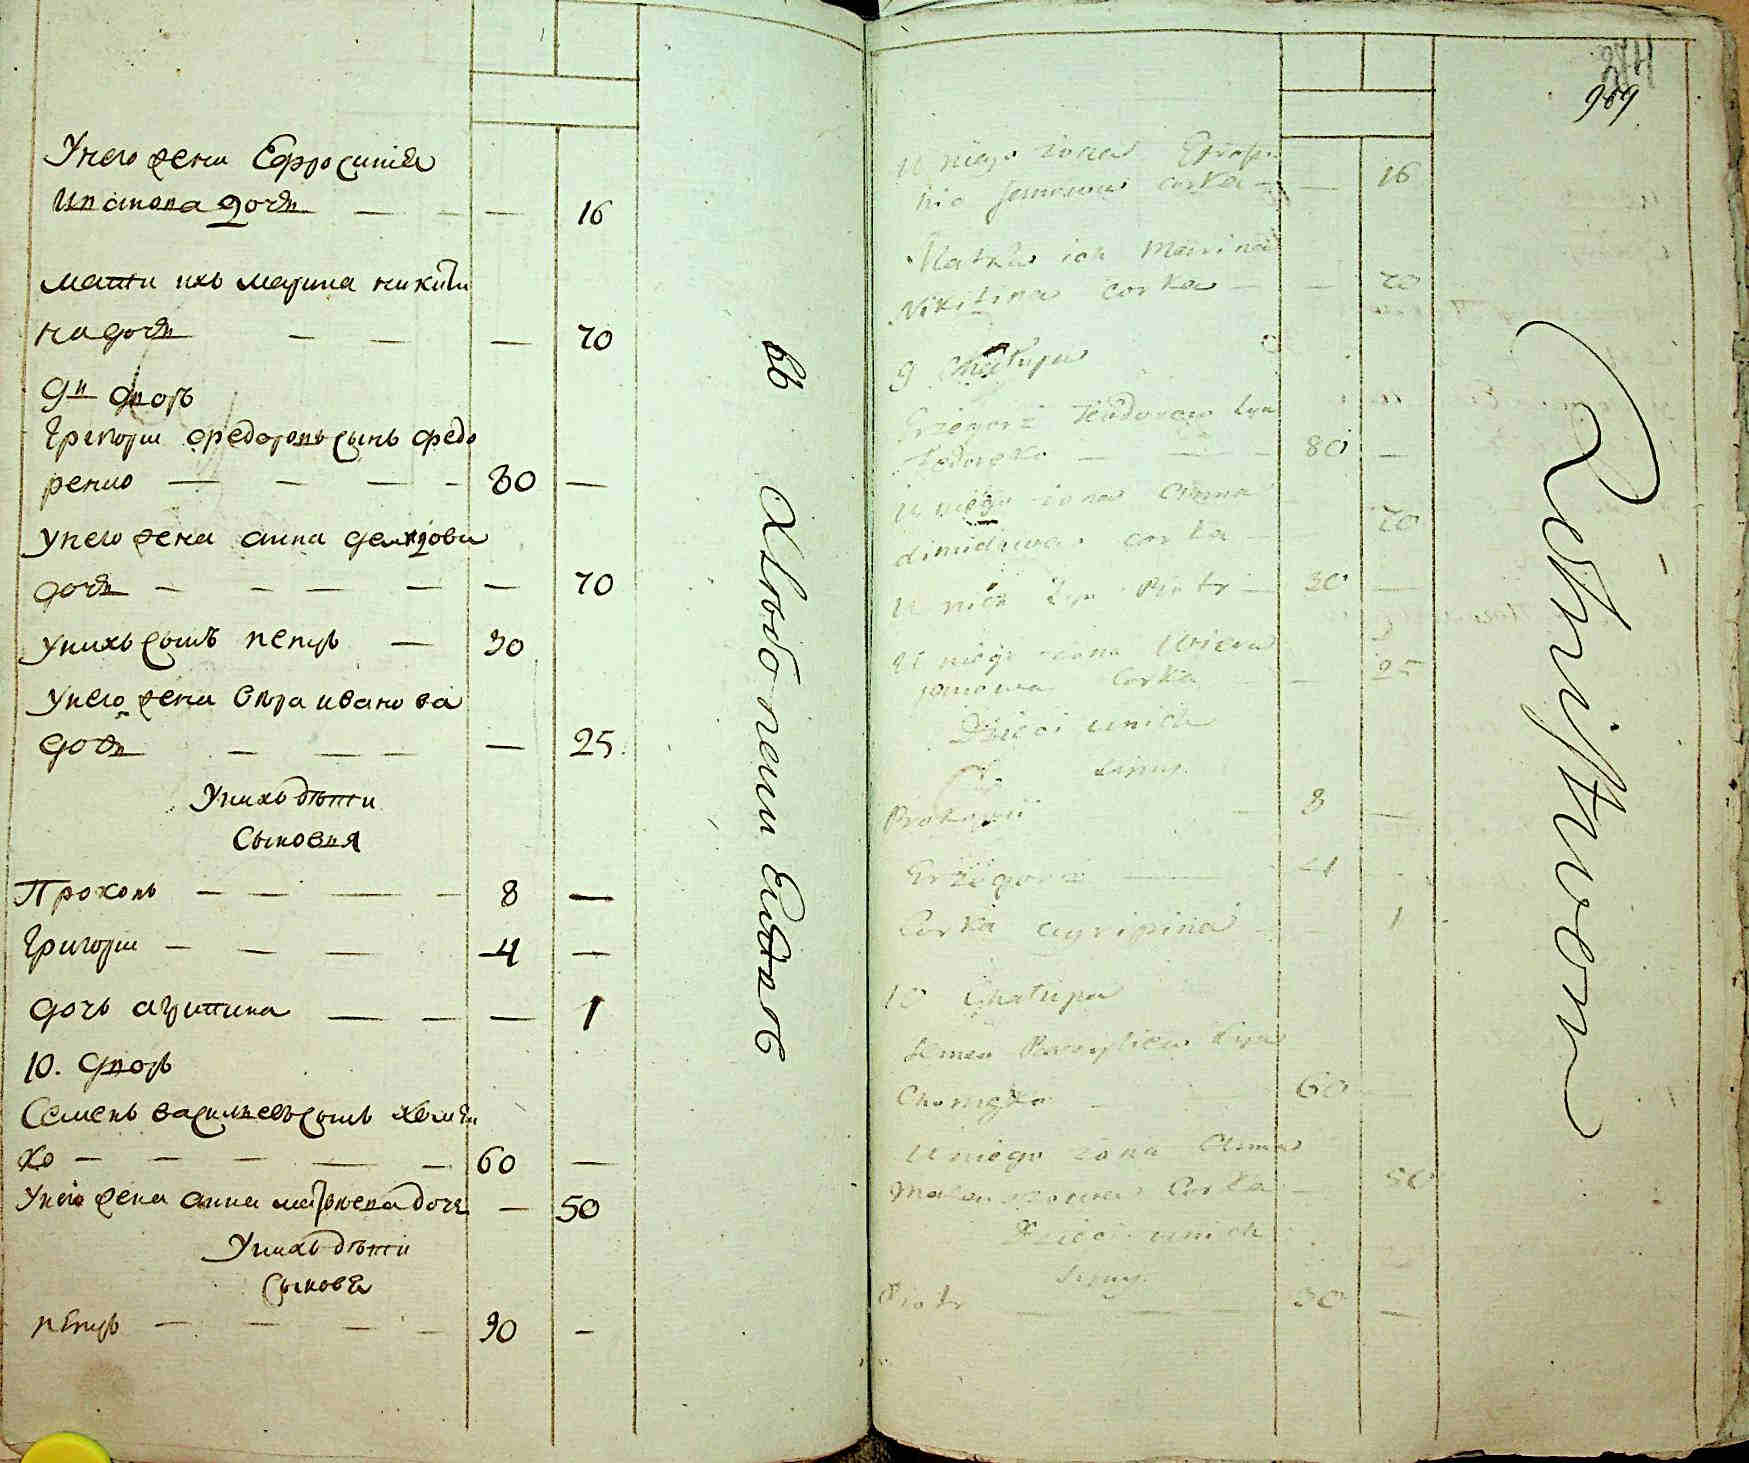 У него жена Ефросиния
Иванова дочь — — — 16
мати ихъ марина никити
на дочь — — — 70
9й дворъ
Григорий федоровъ сынъ федо
ренко — — — — 80 —
У него жена анна демидова
дочь — — — — — 70
У нихъ сынъ петръ — 30
У него жена вѣра иванова
дочь — — — — 25
У нихъ дѣти
Сыновья
Прокопъ — — — — 8 —
Григорий — — — 4 —
дочь агрипина — — — 1
10. дворъ
Семенъ васильевъ сынъ хомен
ко — — — — — 60 —
У него жена анна дочь — 50
У нихъ дѣти
Сыновья
петръ — — — — 30 —
въ
274
969
U niego żona
corka — — 16
Matka ich Marina
Nikitina corka — — 70
9 Chałupa
Grzegorz Teodorow syn
Fedorenko — — — 80 —
U niego żona Anna
dimidowa corka — — 70
U nich syn Piotr — 30 —
U niego żona Wiera
corka — — 25
Dzieci u nich
synuy
Prokopii — 8 —
Grzegorz — 4
Corka agripina — — 1
10 Chałupa
Semen syn
60 —
U niego żona Anna
corka — 50
Dzieci u nich
synuy
Piotr — — 30 —